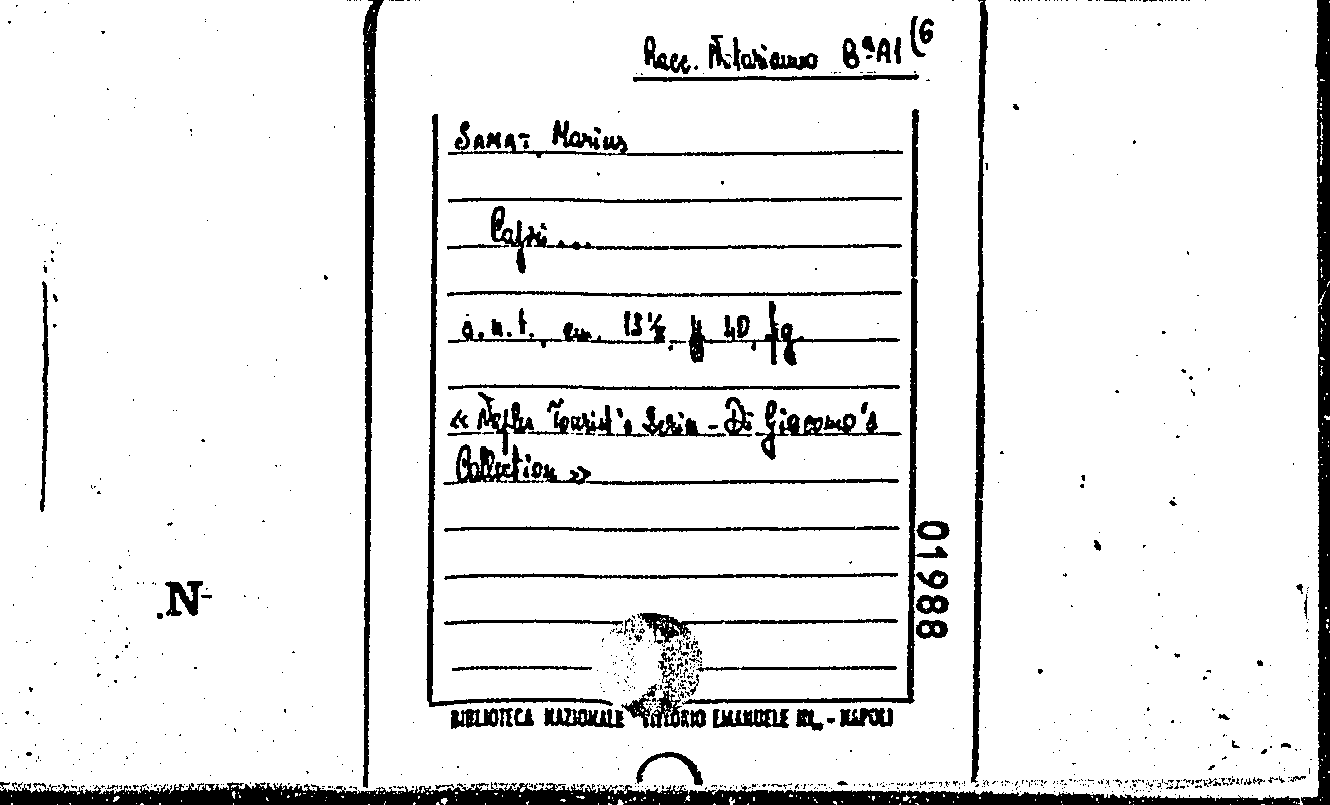 Racc. Notarianno Bª A1 (6
SAMAT, Marius
Capri...
s.n.t., cm. 13½, p 40, fig.
« Naples Tourist's Series - Di Giacomo's
Collection »
01988
.N-
BIBLIOTECA NAZIONALE VITTORIO EMANUELE - NAPOLI